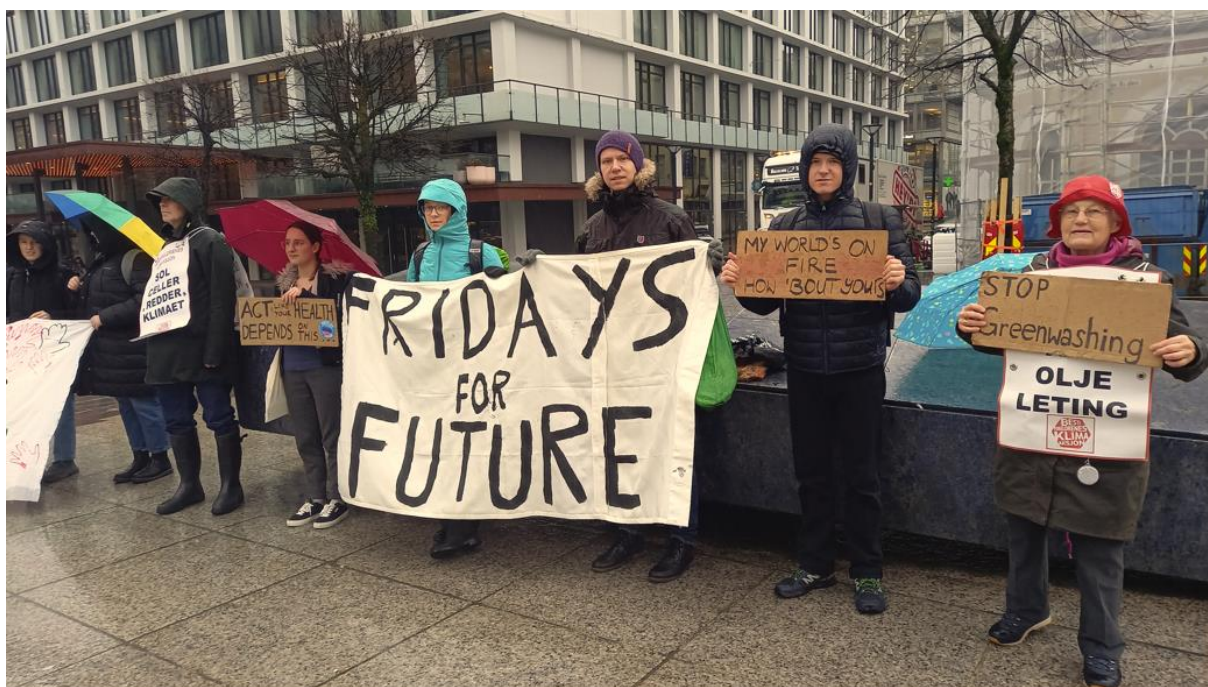 SOL
CELLER
REDDER
KLIMAET
ACT
YOUR HEALTH
DEPENDS ON
THIS
FRIDAYS
FOR
FUTURE
MY WORLD'S ON
FIRE
HOW 'BOUT YOURS
STOP
Greenwashing
OLJE
LETING
BESTEFORELDRENES
KLIMA
AKSJON